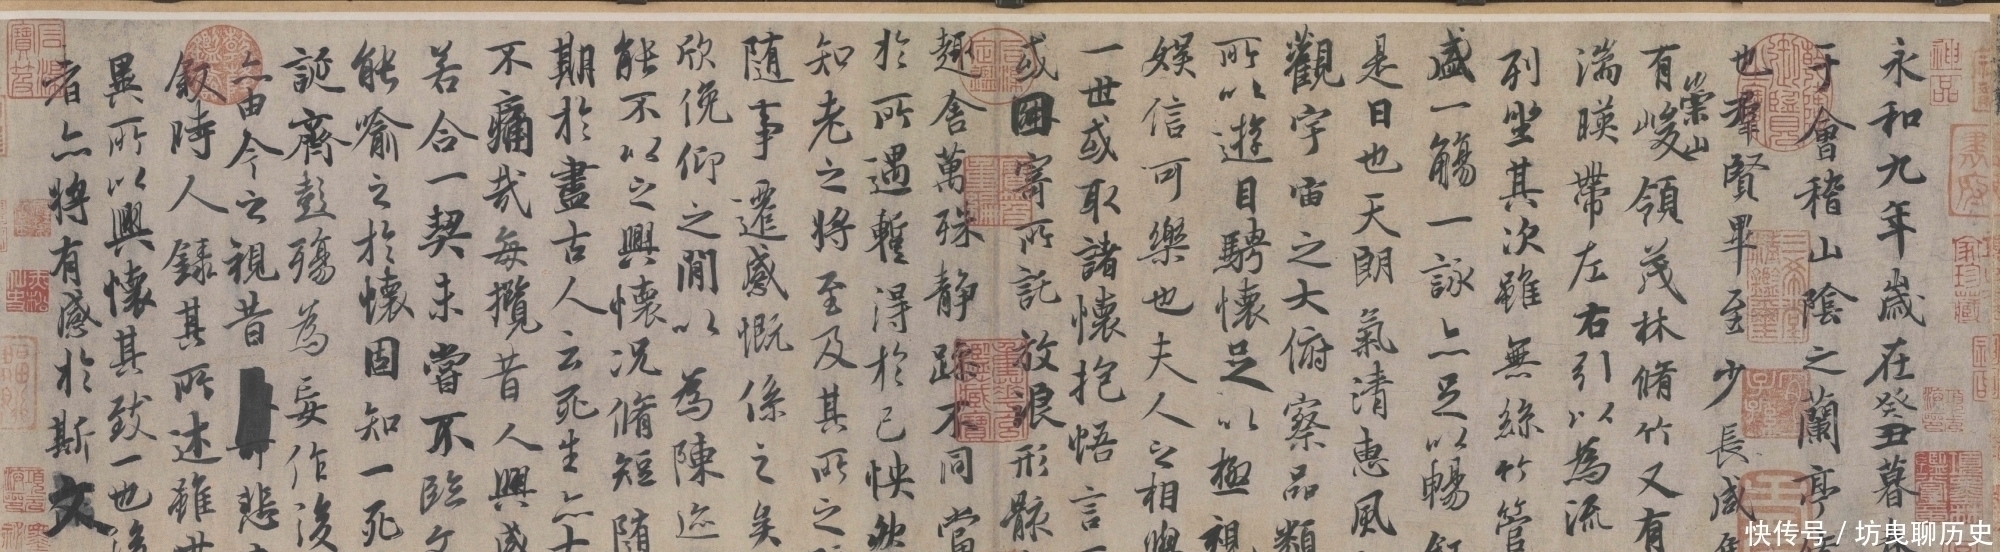 永和九年歲在癸丑暮
于會稽山陰之蘭亭
也羣賢畢至少長咸
崇山
有峻領茂林脩竹又有
湍暎帶左右引以為流
列坐其次雖無絲竹管
盛一觴一詠亦足以暢
是日也天朗氣清惠風
觀宇宙之大俯察品類
所以遊目騁懷足以極視
娛信可樂也夫人之相與
一世或取諸懷抱悟言
或因寄所託放浪形骸
趣舍萬殊靜躁不同當
於所遇暫得於己怏然
知老之將至及其所之
隨事遷感慨係之矣
欣俛仰之閒以為陳迹
能不以之興懷況脩短隨
期於盡古人云死生亦大
不痛哉每攬昔人興感
若合一契未嘗不臨文
能喻之於懷固知一死
誕齊彭殤為妄作後
亦由今之視昔悲
敘時人錄其所述雖世
異所以興懷其致一也後
者亦將有感於斯文
神品
快传号 / 坊曳聊历史